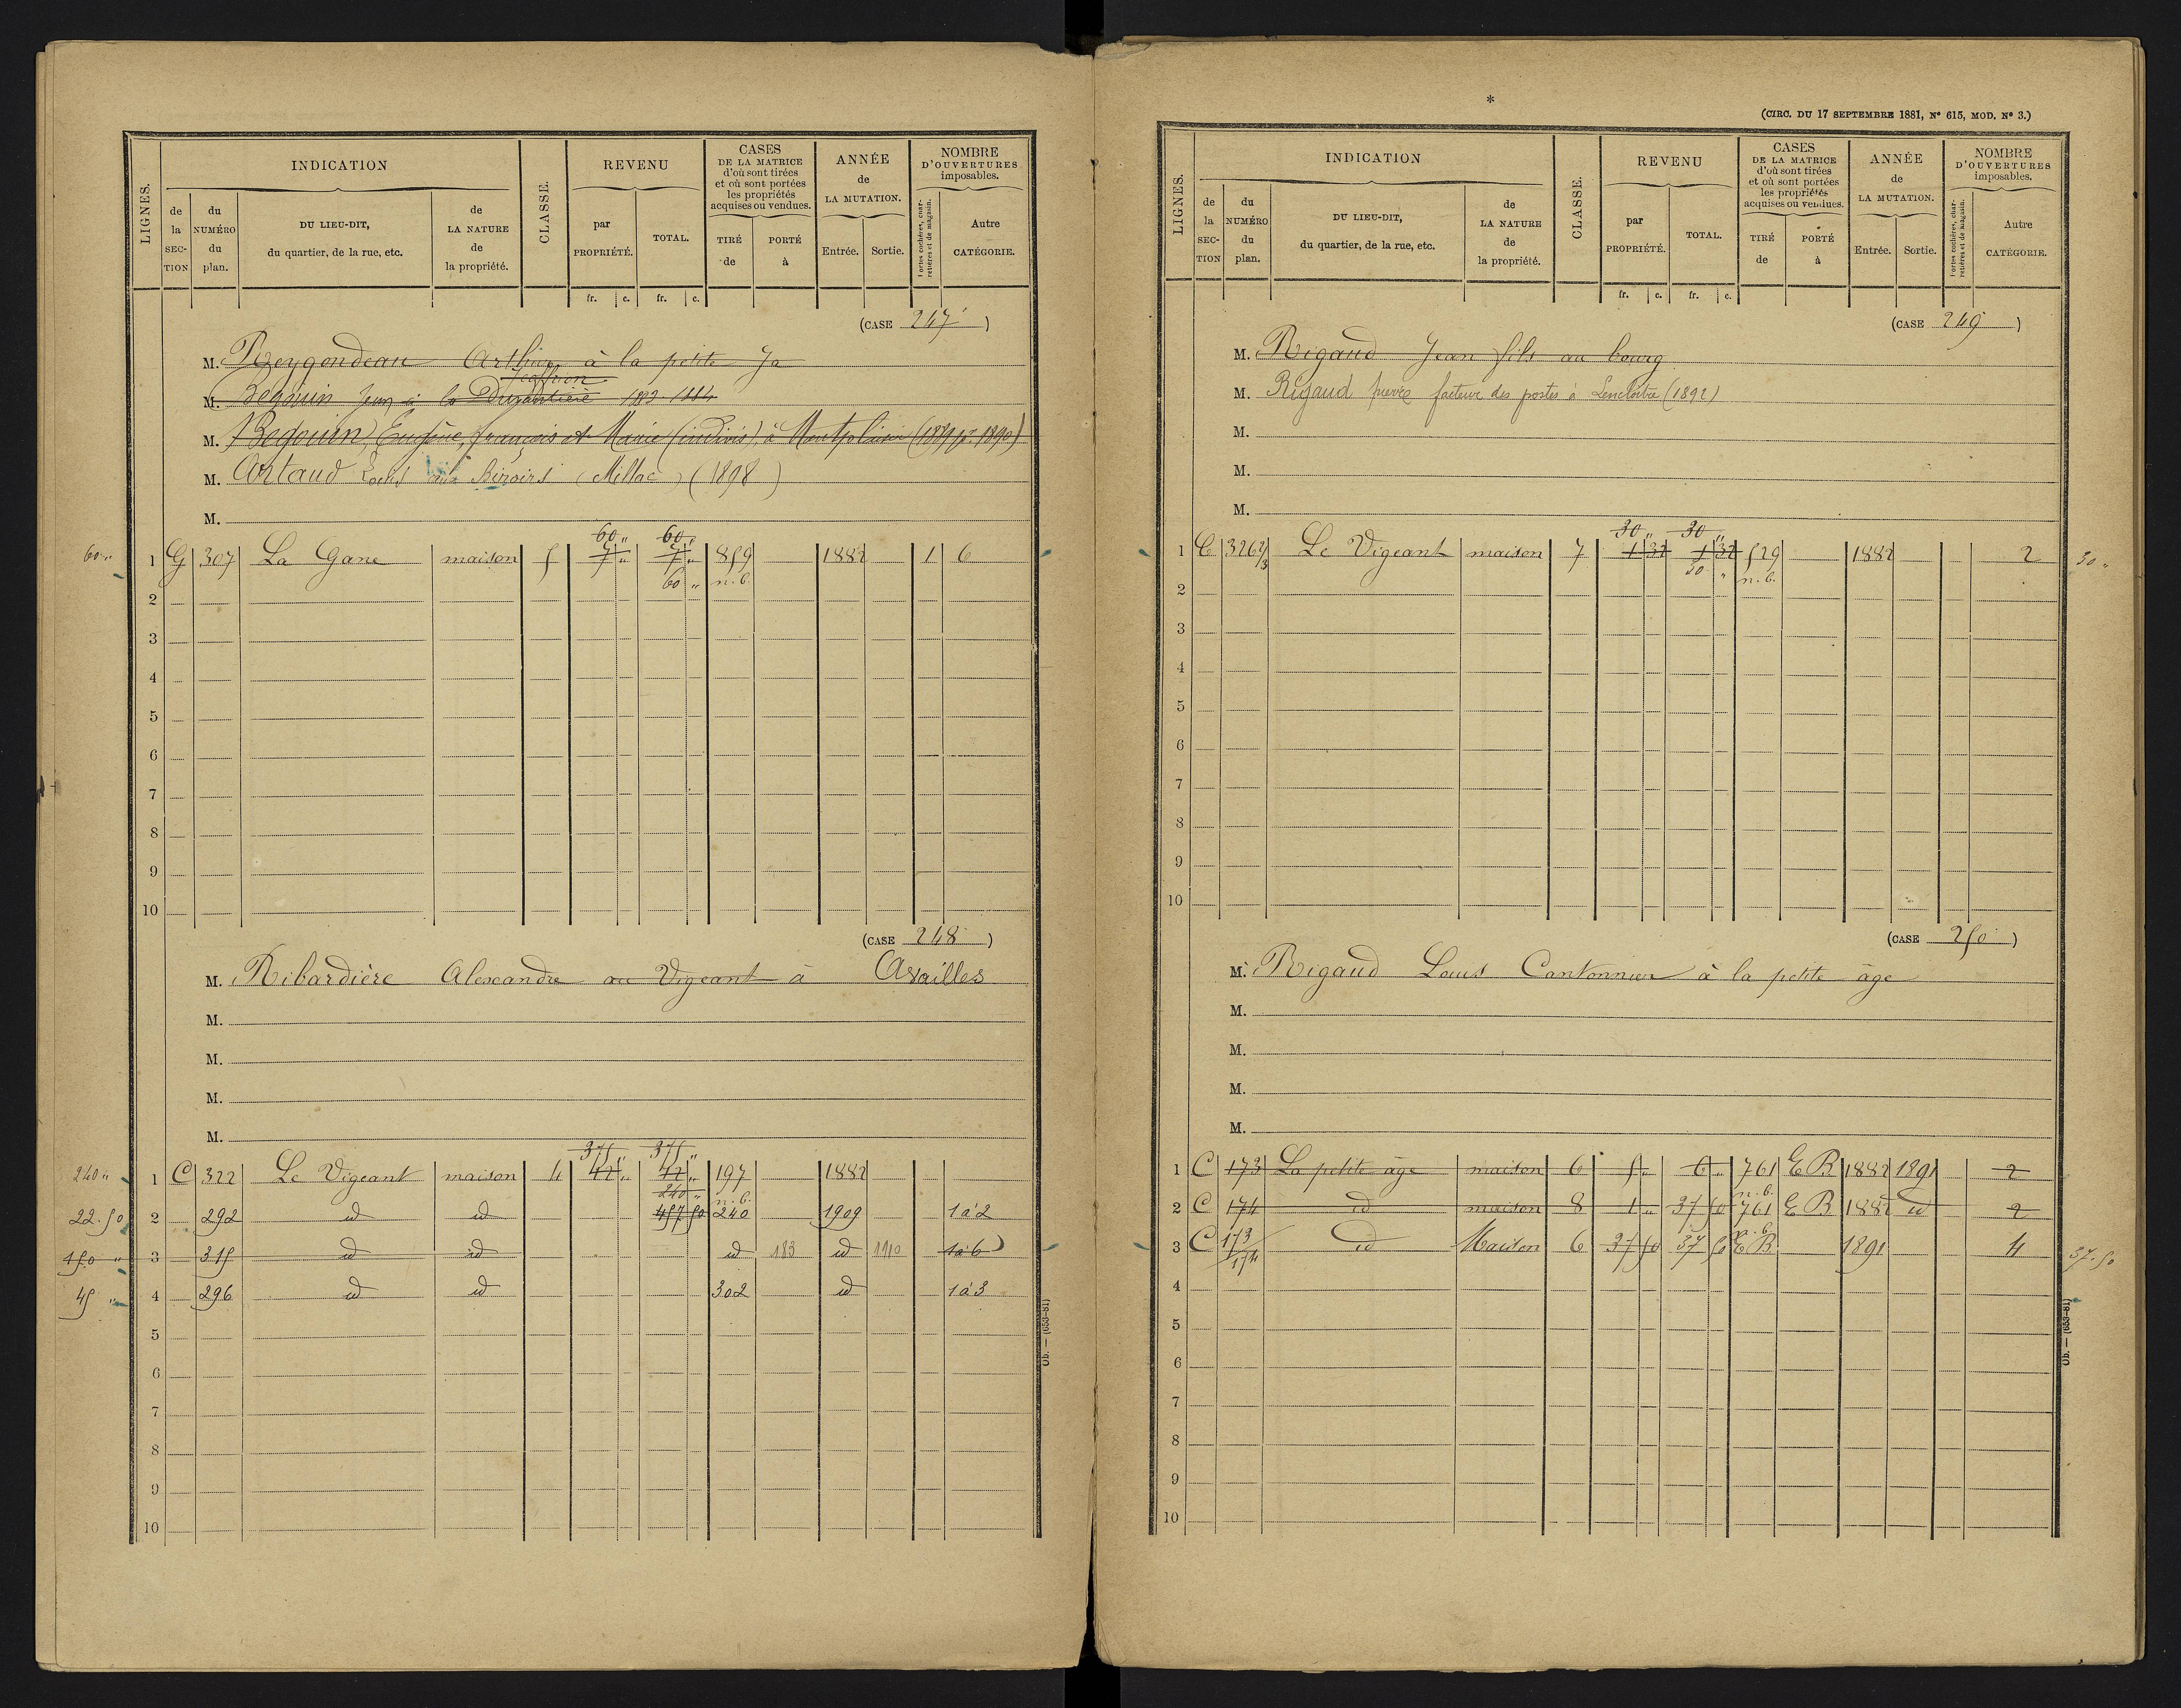 LIGNES.
INDICATION
de la SECTION
du NUMÉRO du plan.
DU LIEU-DIT, du quartier, de la rue, etc.
de LA NATURE de la propriété.
CLASSE.
REVENU
par PROPRIÉTÉ.
TOTAL.
fr. c. fr. c.
CASES DE LA MATRICE d'où sont tirées et où sont portées les propriétés acquises ou vendues.
TIRÉ de
PORTÉ à
ANNÉE de LA MUTATION.
Entrée. Sortie.
NOMBRE D'OUVERTURES imposables.
Portes cochères, charretières et de magasin.
Autre CATÉGORIE.
(CASE 247)
M. Preygondeau Arthur à la petite Ja
M. Begouin Jean à la Durantière 1883 1884
M. Begouin, Eugène, françois et Marie (indivis), à (1889 pr 1890)
M. Artaud Louis aux (Millac) (1898)
M.
60 „ 60 „
60 „ 1 G 307 La Gane maison 5 7 „ 7 „ 859 1882 1 6
60 „ n.b.
2
3
4
5
6
7
8
9
10
(CASE 248)
M. Ribardière Alexandre au Vigeant à Availles
M.
M.
M.
M.
375 „ 375 „
240 „ 1 C 322 Le Vigeant maison 4 42 „ 42 „ 197 1882
240 „ n.b.
22.50 2 292 id id 457 50 240 1909 1 à 2
150 „ 3 315 id id id 183 id 1910 1 à 6
45 „ 4 296 id id 302 id 1 à 3
5
6
7
8
9
10
Ob. — (653-81)
*
(CIRC. DU 17 SEPTEMBRE 1881, N° 615, MOD. N° 3.)
LIGNES.
INDICATION
de la SECTION
du NUMÉRO du plan.
DU LIEU-DIT, du quartier, de la rue, etc.
de LA NATURE de la propriété.
CLASSE.
REVENU
par PROPRIÉTÉ.
TOTAL.
fr. c. fr. c.
CASES DE LA MATRICE d'où sont tirées et où sont portées les propriétés acquises ou vendues.
TIRÉ de
PORTÉ à
ANNÉE de LA MUTATION.
Entrée. Sortie.
NOMBRE D'OUVERTURES imposables.
Portes cochères, charretières et de magasin.
Autre CATÉGORIE.
(CASE 249)
M. Rigaud Jean fils au bourg
M. Rigaud facteur des postes à Lencloître (1892)
M.
M.
M.
30 „ 30 „
1 C 326 2/3 Le Vigeant maison 7 1 32 1 32 529 1882 2 30 „
30 „ n.b.
2
3
4
5
6
7
8
9
10
(CASE 250)
M. Rigaud Louis Cantonnier à la petite âge
M.
M.
M.
M.
1 C 173 La petite âge maison 6 5 „ 6 „ 761 E B 1882 1891 2
n.b.
2 C 174 id maison 8 1 „ 37 50 761 E B 1882 id 2
n.b.
3 C 173/174 id Maison 6 37 50 37 50 E B 1891 4 37.50
4
5
6
7
8
9
10
Ob. — (653-81)